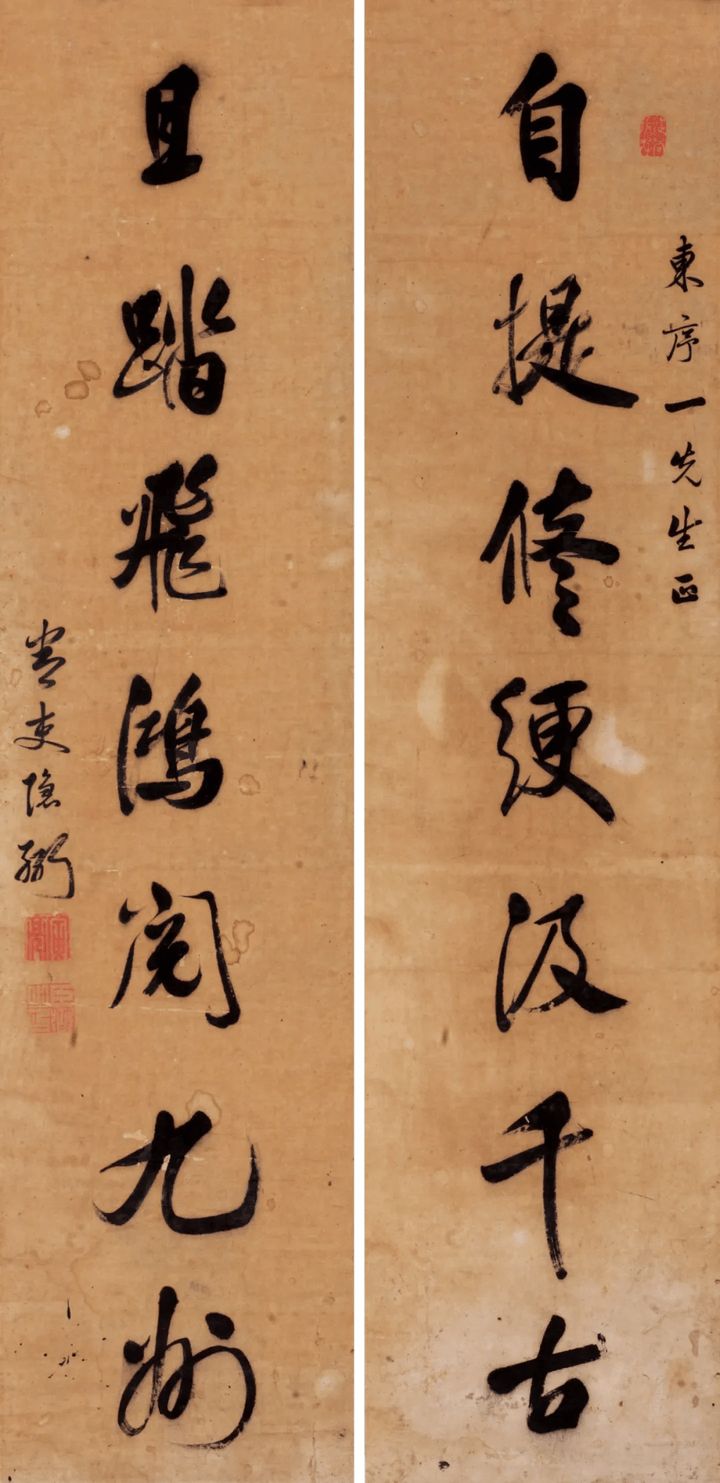 東序一先生正
自提修綆汲千古
且踏飛鴻閱九州